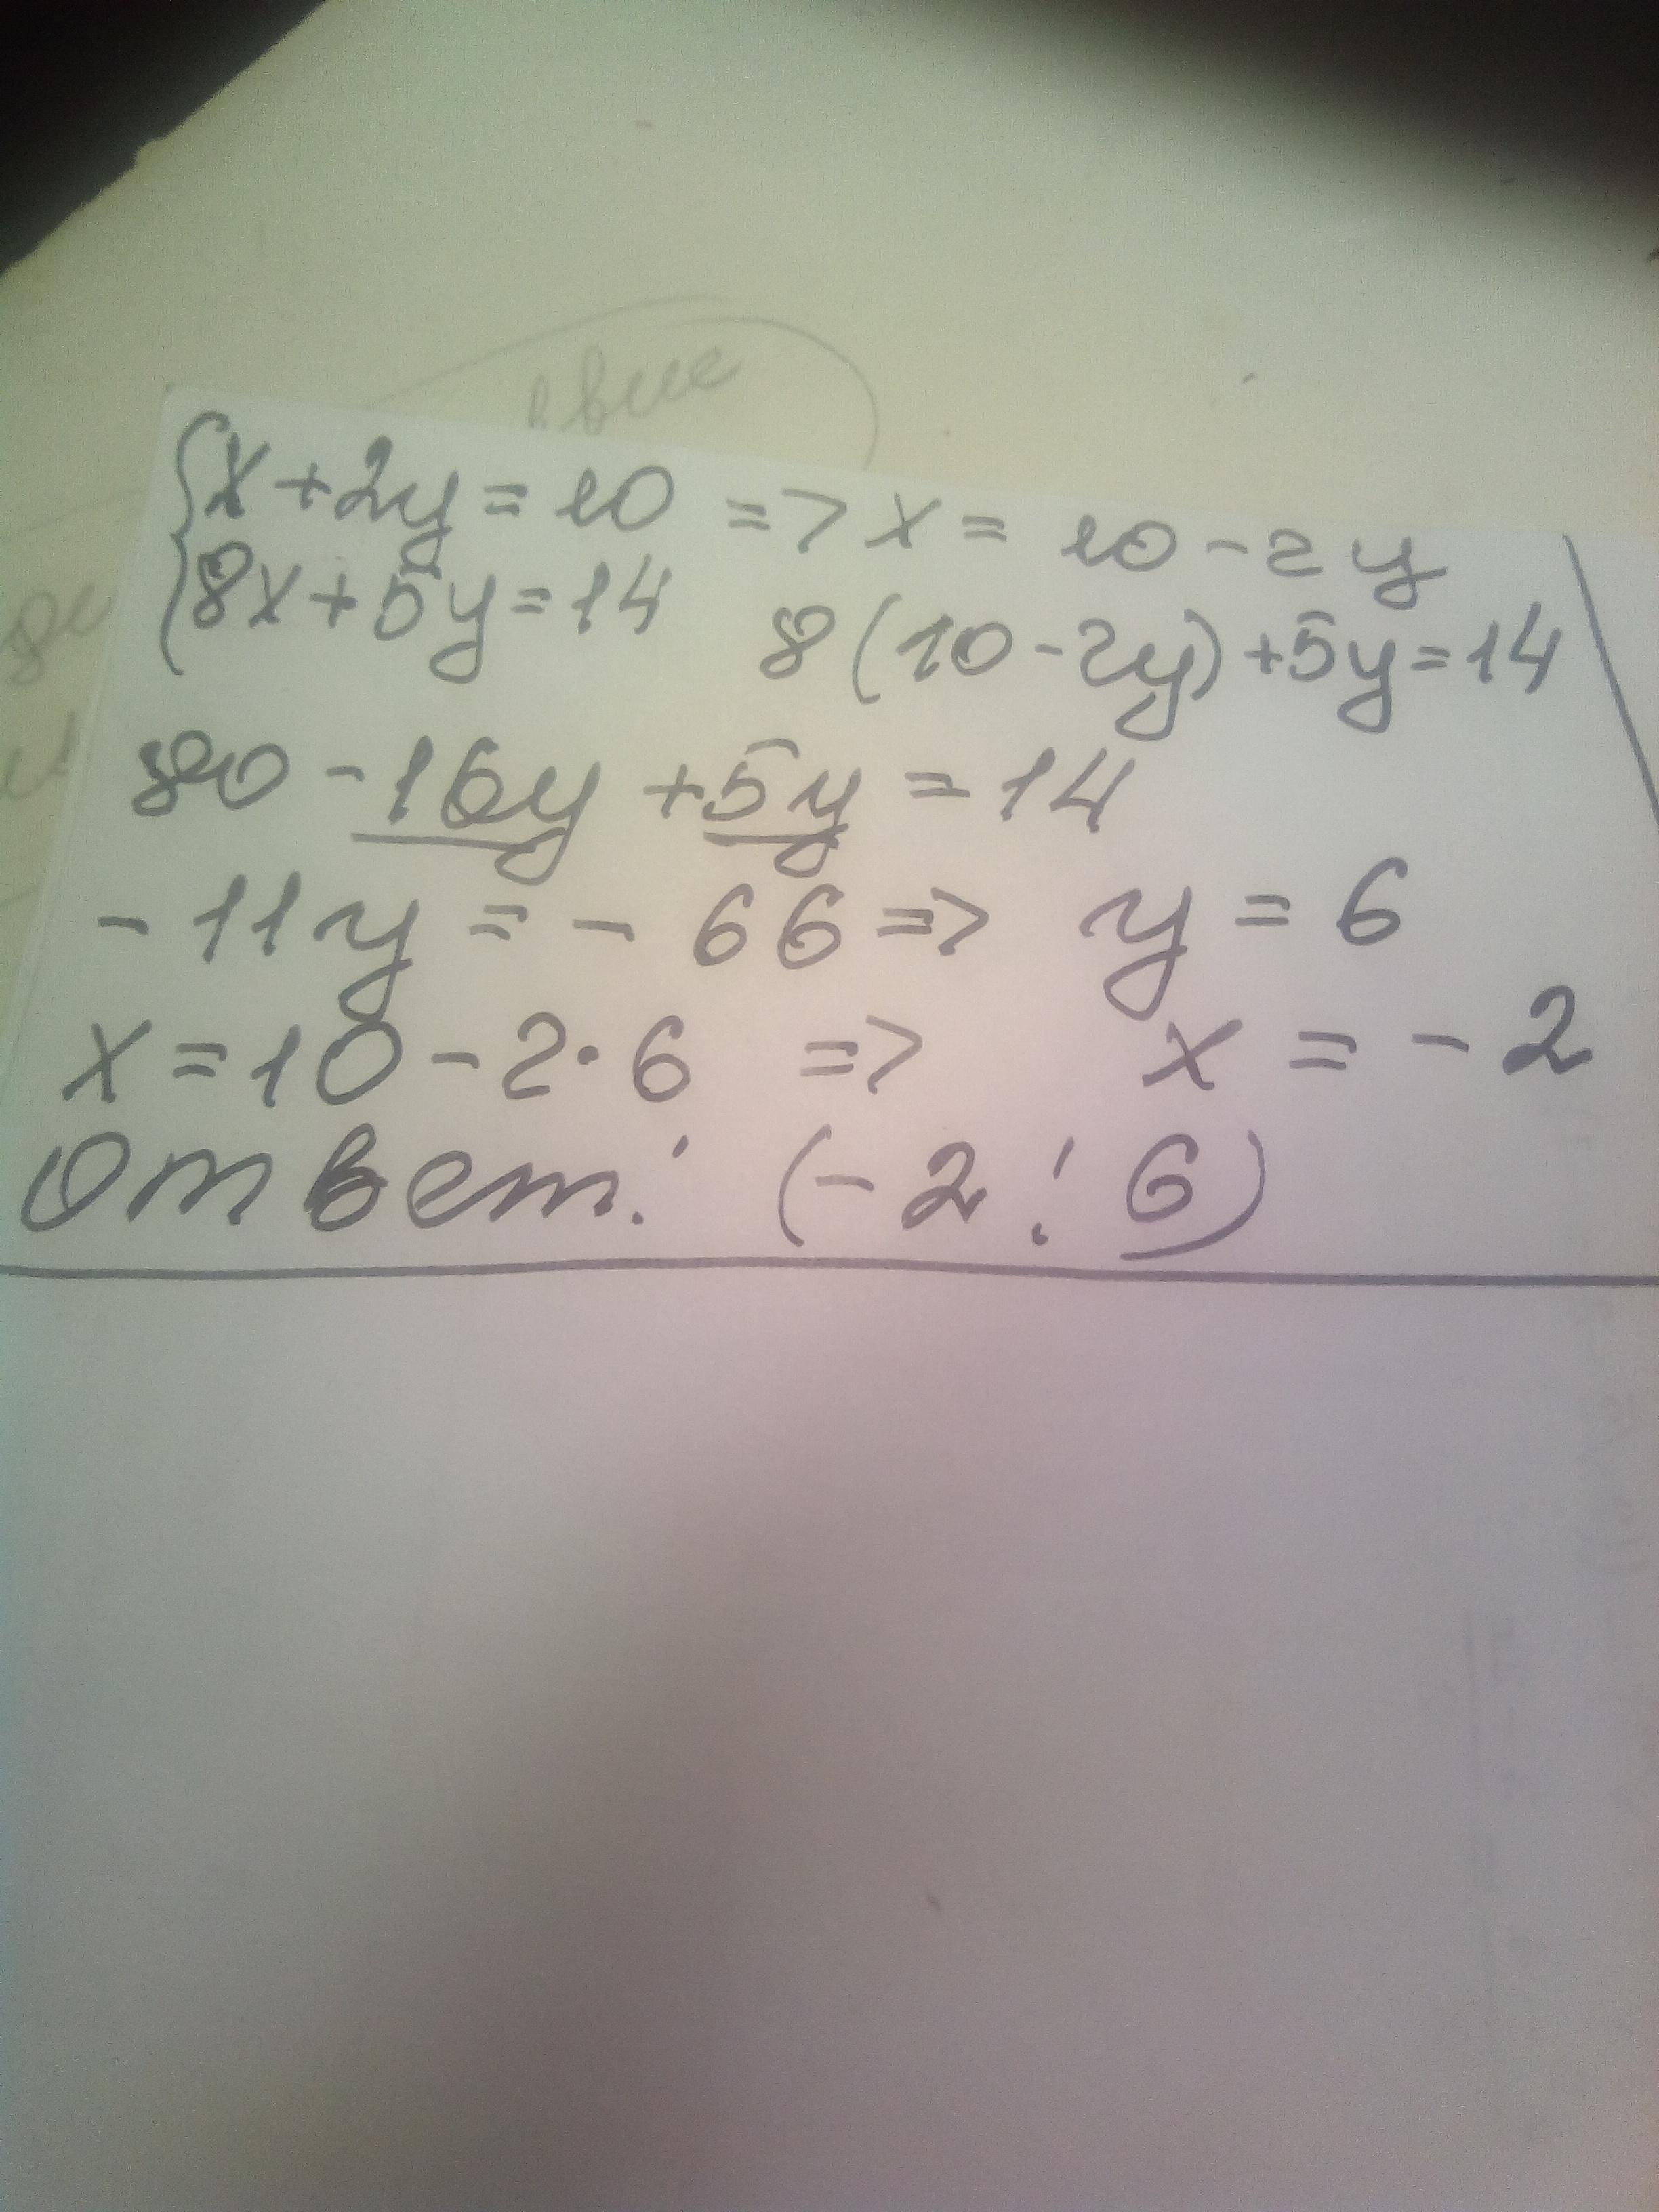 {x+2y=10 => x = 10-2y
{8x+5y=14 8(10-2y)+5y=14
80 -16y +5y = 14
- 11y = - 66 => y = 6
x = 10 - 2·6 => x = - 2
Ответ: (-2; 6)